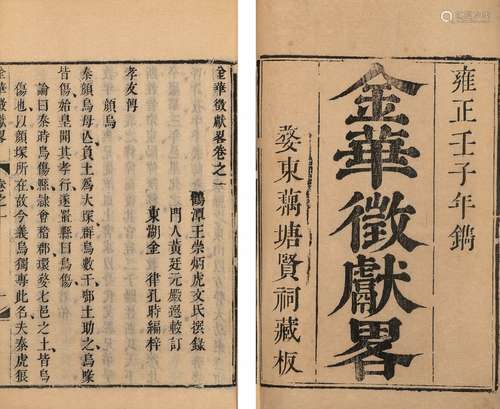 雍正壬子年鐫
金華徵獻畧
婺東藕塘賢祠藏板
金華徵獻畧卷之一
鶴潭王崇炳虎文氏撰錄
門人黃廷元嚴選較訂
東湖金 律孔時編梓
孝友傳
顏烏
秦顏烏母亾負土爲大塚群烏數千啣土助之烏喙
皆傷始皇聞其孝行遂署縣曰烏傷
論曰秦時烏傷縣隸會稽郡環婺七邑之土皆烏
傷也以顏塚所在故今義烏獨專此名夫秦虎狼
金華徵獻畧
卷之一
一